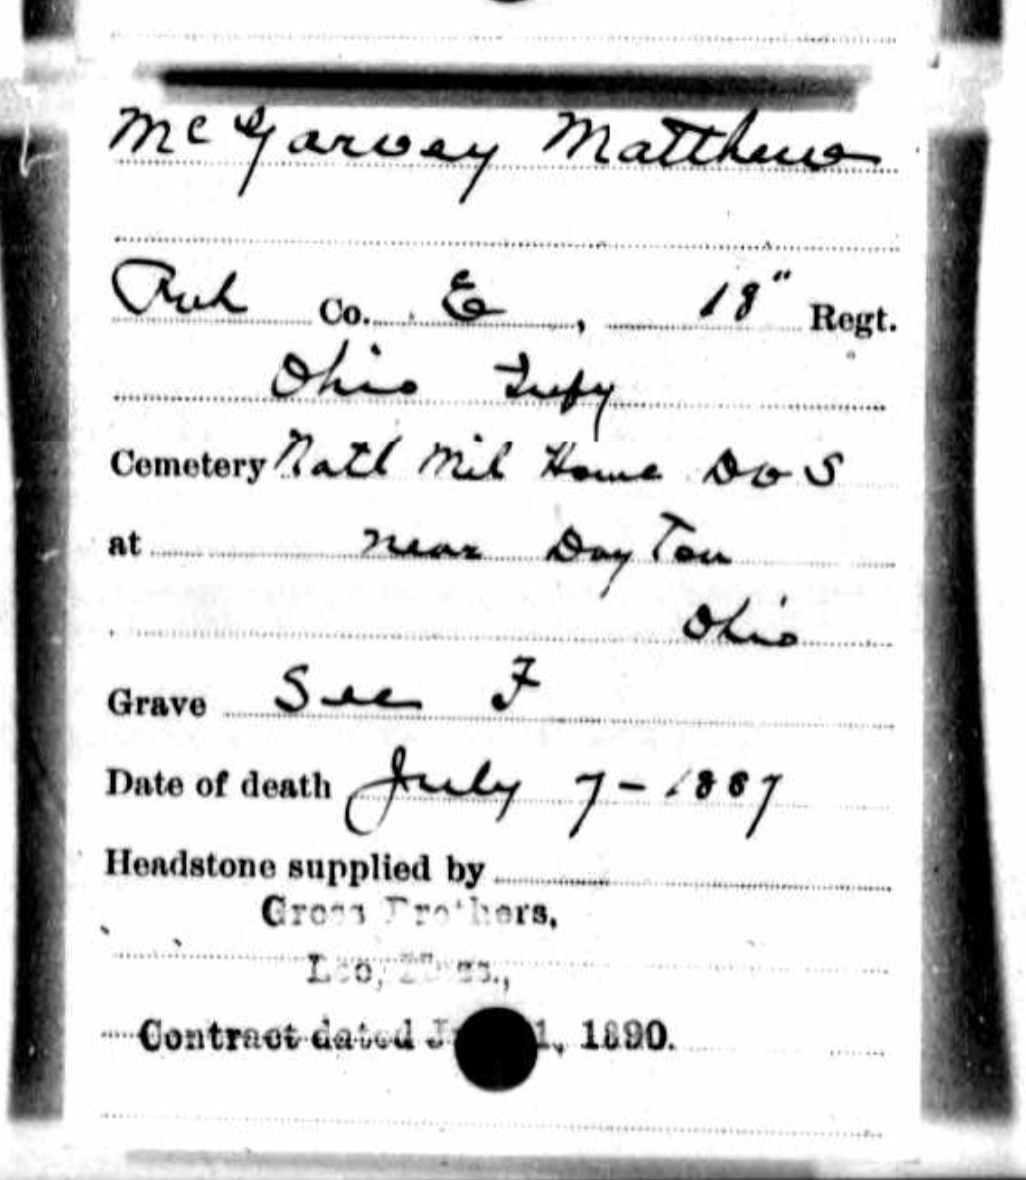 McGarvey Matthew
Co. E, 18" Regt.
Ohio Infy
Cemetery Natl Mil Home D V S
at near Dayton
Ohio
Grave Sec F
Date of death July 7-1887
Headstone supplied by
Gross Brothers,
Lee, Mass.,
Contract dated 1, 1890.